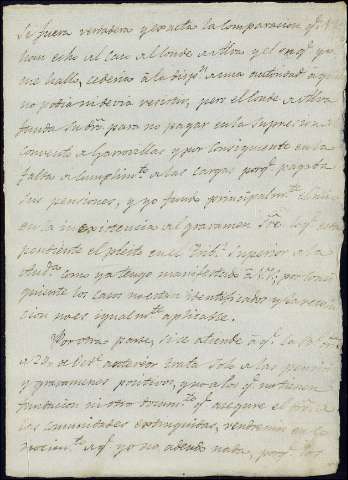 Si fuera verdadera y exacta la comparacion q.e
han echo al caso del Conde de Alba y el en q.e yo
me hallo, cederia à la disp.n de una autoridad a quien
no podria ni devia resistir, pero el Conde de Alva
funda su para no pagar en la Supresion del
convento de Garrovillas y por consiguiente en la
falta de cumplim.to de las cargas porq.e pagaba
sus pensiones, y yo fundo principalm.te
en la inexistencia del gravamen sre. lo q.e esta
pendiente el pleito en el Trib.l Superior de la
como ya tengo manifestado à V.S; por consi
guiente los casos no estan identificados y la resolu
cion no es igualm.te aplicable.
Por otra parte, si se atiende à q.e la
de 20 de anterior trata solo de las pensiones
y gravamenes positivos, y no de los q.e no tienen
fundacion ni otro docum.to q.e asegure el
las comunidades extinguidas, vendremos en co
nocim.to de q.e yo no adeudo nada, porq.e los